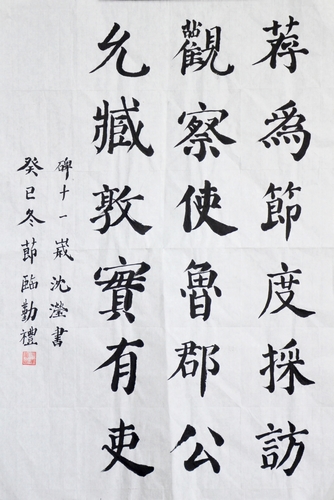 荐為節度採訪
觀察使魯郡公
允臧敦實有吏
癸巳冬莭臨勤禮
碑十一歲沈瀅書